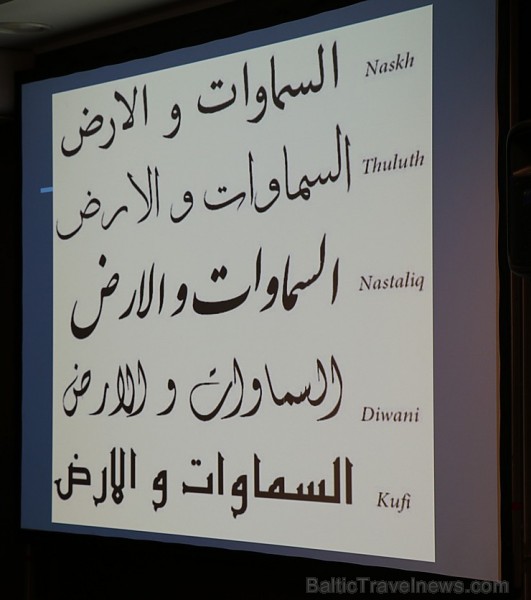 السماوات و الارض Naskh
السماوات و الارض Thuluth
السماوات و الارض Nastaliq
السماوات و الارض Diwani
السماوات و الارض Kufi
BalticTravelnews.com